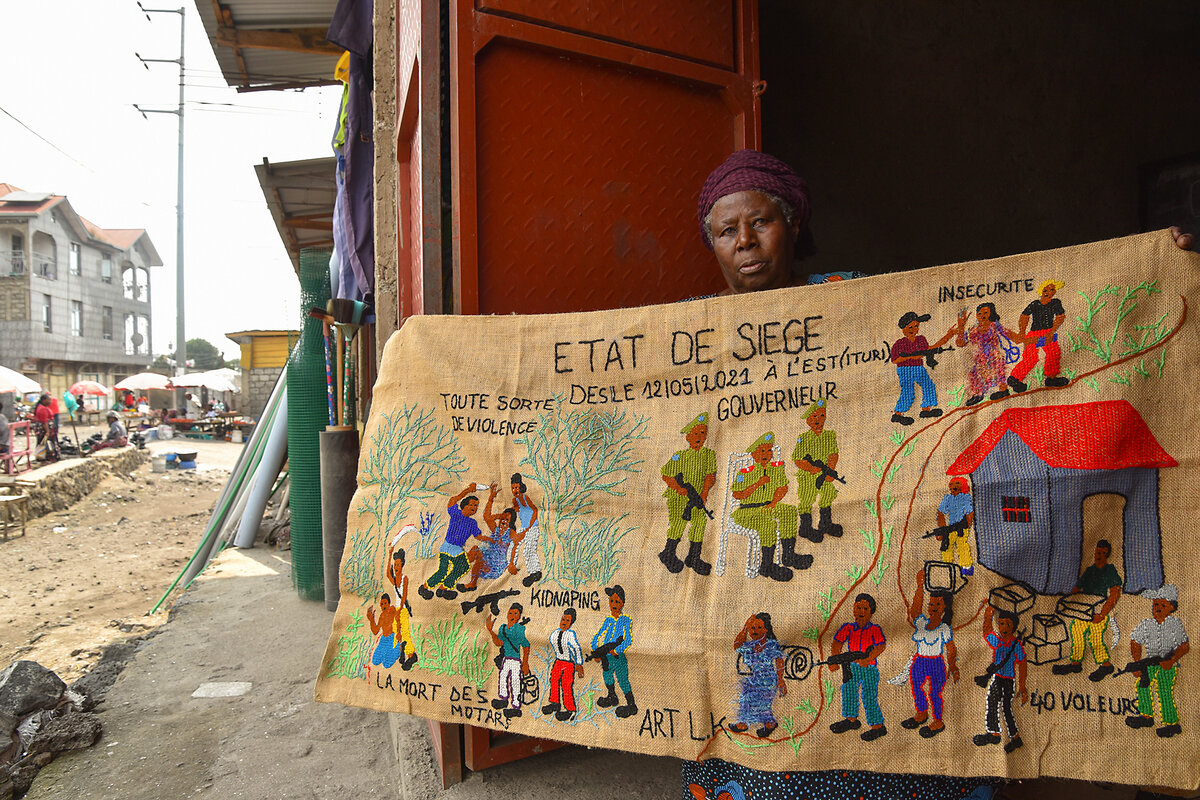 ETAT DE SIEGE
DES LE 12/05/2021 À L'EST (ITURI)
INSECURITE
TOUTE SORTE
DE VIOLENCE
GOUVERNEUR
KIDNAPING
LA MORT DES
MOTARS
ART L.K
40 VOLEURS